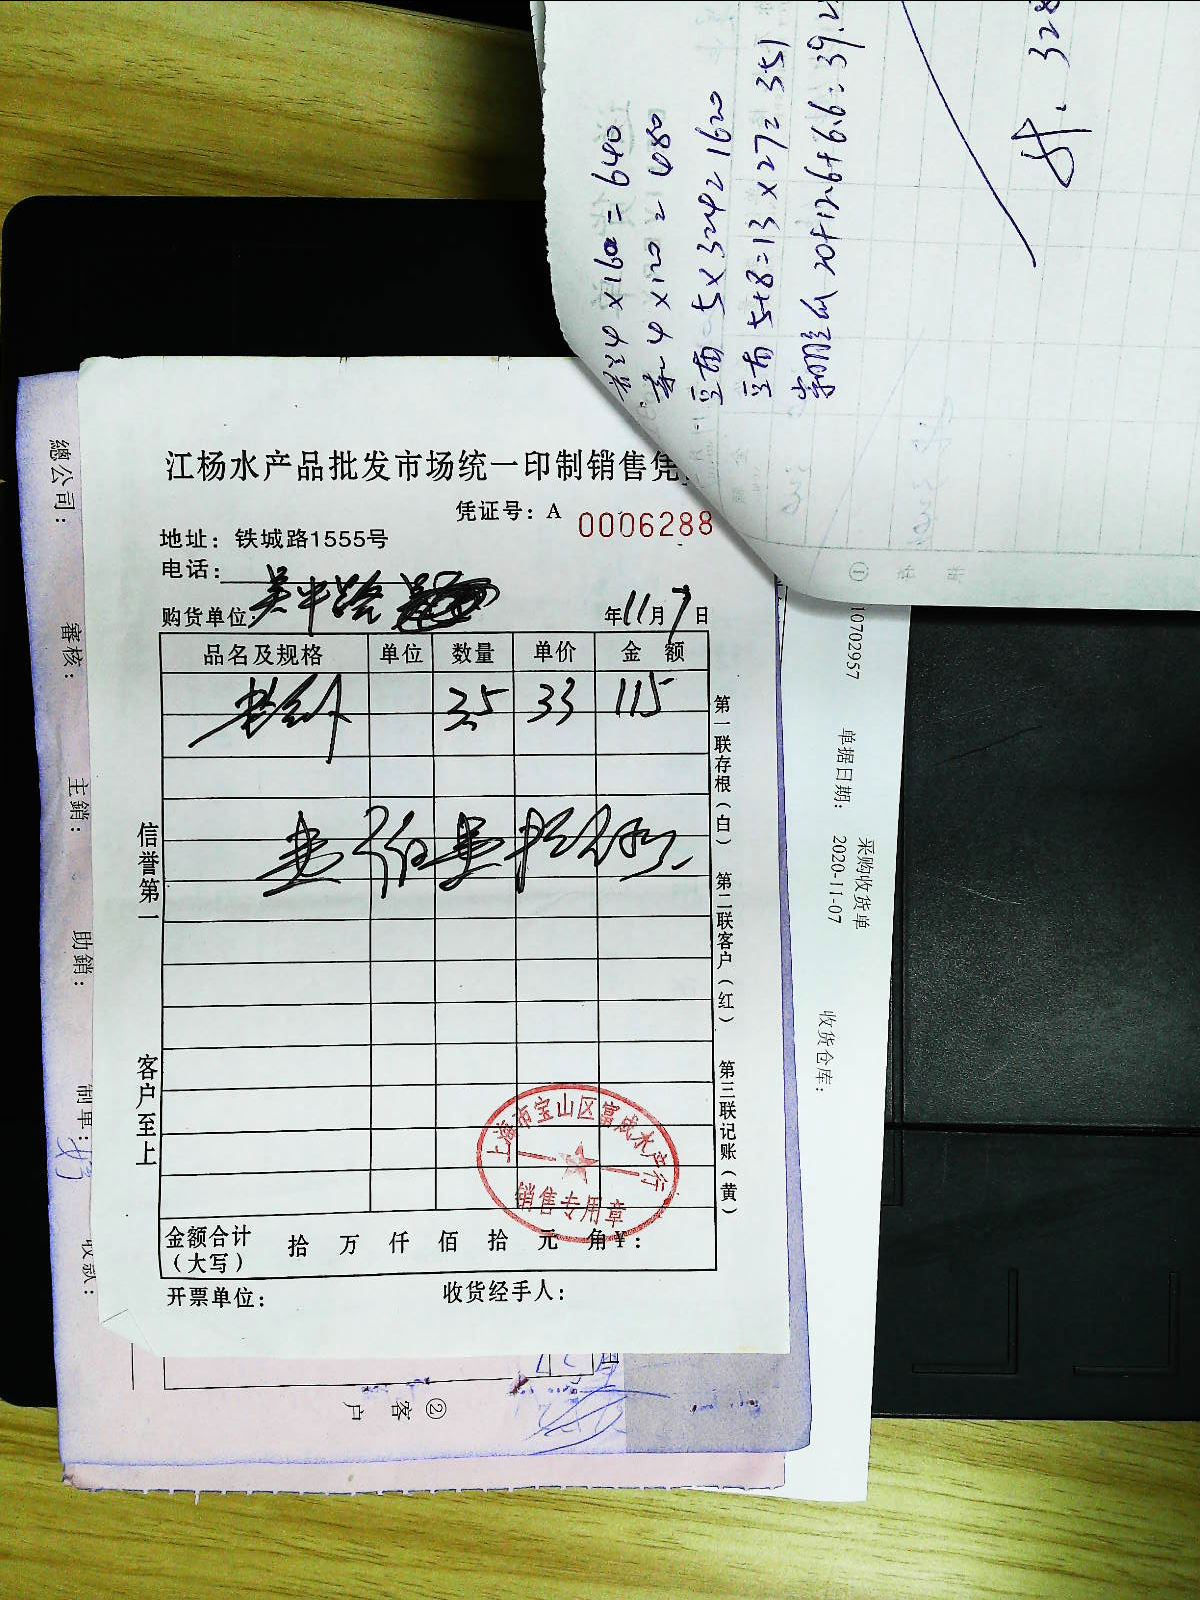 江杨水产品批发市场统一印制销售凭
凭证号：A 0006288
地址：铁城路1555号
电话：
购货单位：吴中路
年11月7日
品名及规格 单位 数量 单价 金 额
3.5 33 115
壹佰壹拾伍元
金额合计（大写） 拾 万 仟 佰 拾 元 角￥：
开票单位：
收货经手人：
信誉第一
客户至上
第一联存根（白） 第二联客户（红） 第三联记账（黄）
上海市宝山区富成水产行
销售专用章
總公司：
審核：
主銷：
助銷：
制单：
收款：
② 客户
10702957
单据日期： 2020-11-07
采购收货单
收货仓库：
4×160=640
4×120=480
5×324=1620
5+8=13×27=351
20+12.6+6.6=39.2
328